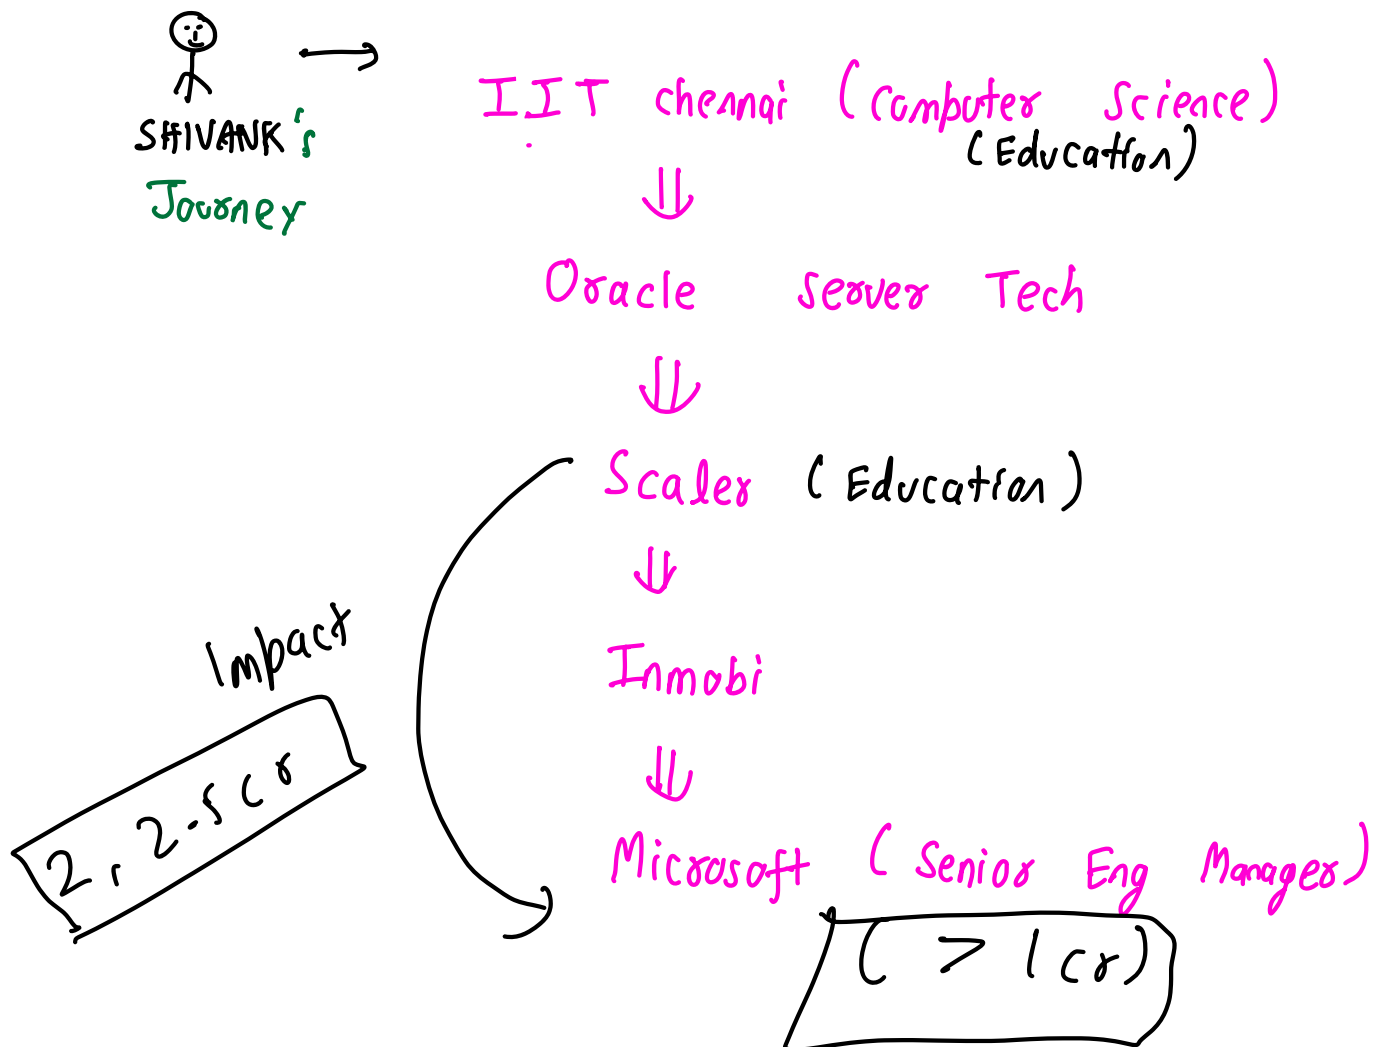 SHIVANK's
Journey
IIT chennai (Computer Science)
(Education)
Oracle server Tech
Scaler (Education)
Inmobi
Microsoft (Senior Eng Manager)
(> 1 cr)
Impact
2, 2.5 cr